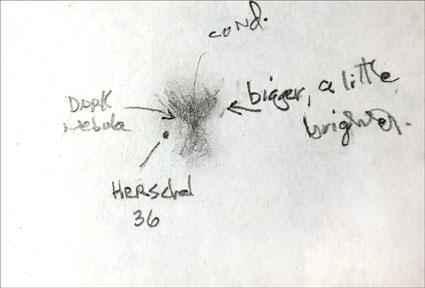 cond.
Dark
Nebula
bigger, a little
brighter.
Herschel
36